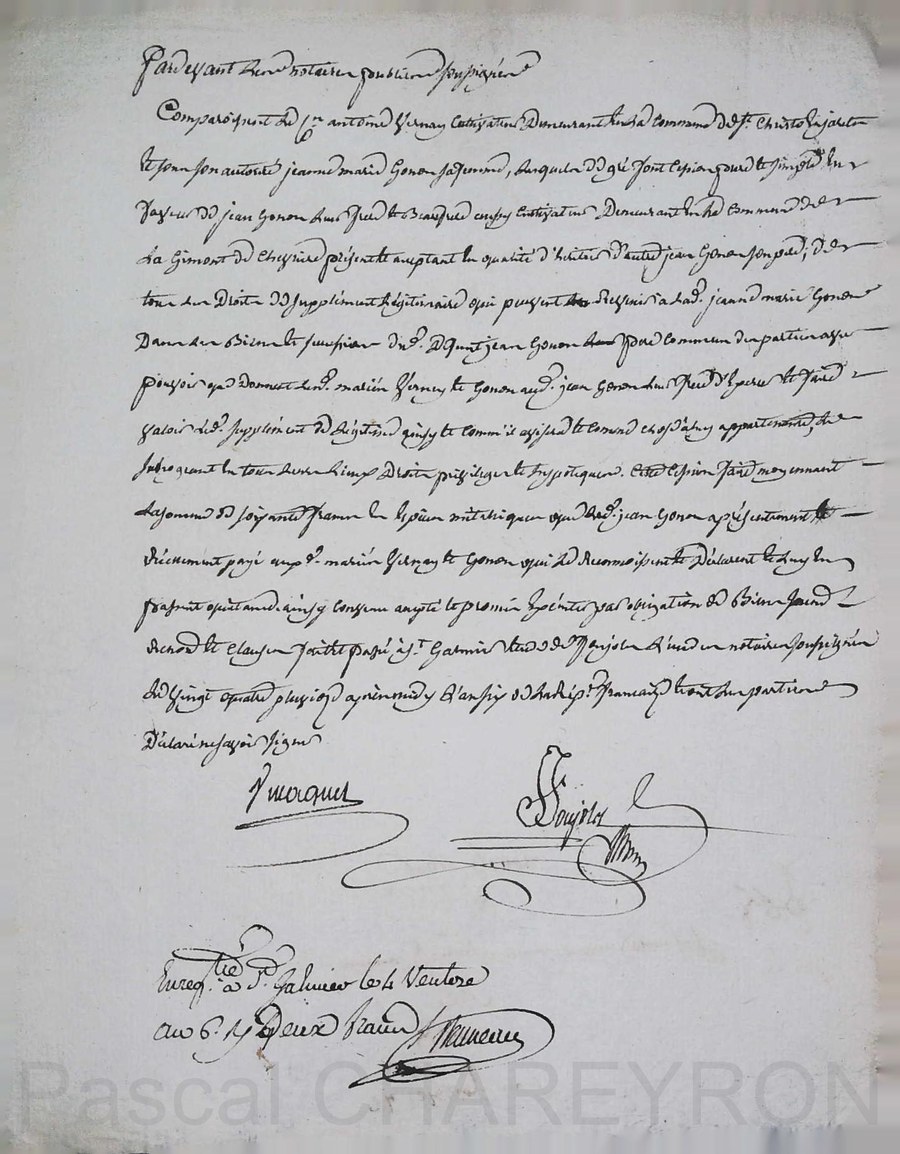 Pardevant les notaires publics soussignés
Comparoissent le Cen antoine Vernay Cultivateur Demeurant en la commune de St. Christo Lajarlon
et sous son autorité jeanne marie Gonon sa femme, lesquels de gré font Cession pure et simple en
faveur de jean Gonon leur frere et Beaufrere aussy Cultivateur Demeurant en la Commune de
La Gimont de Chevrieres présent et acceptant en qualité d'héritier d'autre jean Gonon son pere; de
tous les Droits de supplément de légitimaire qui peuvent Revenir a lad. jeanne marie Gonon
Dans les Biens et succession dud. Defunt jean Gonon pere Commun des parties avec
pouvoir que Donnent lesd. mariés Vernay et Gonon aud. jean Gonon leur frere d'exercer et faire
valoir led. supplément de légitime ainsy et Comm'il avisera et Comme chose à luy appartenant, le
subrogeant en tous leurs Lieux Droits privileges et hypoteques. Cette Cession faite moyennant
la somme de soixante francs en Espèces métalliques que led. jean Gonon a présentement et
réellement payé auxd. mariés Vernay et Gonon qui le Reconnoissent et Déclarent et luy en
passent quittance. ainsy convenu accepté et promis Exécuter par obligation de Biens
Renon. et Clauses fait et passé à St. Galmier Etude de Ponjolas L'un des notaires soussignés
Le Vingt quatre pluviose après midy L'an six de la Rep. francaise et ont les parties
Déclaré ne savoir signer
Ponjolas
Enregtré à St. Galmier le 4 Ventose
an 6. R Deux francs
Pascal CHAREYRON